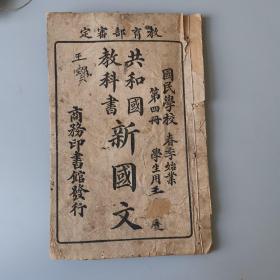 定審部育教
國民學校 春季始業
第四冊 學生用
共和國
教科書
新國文
商務印書館發行
王